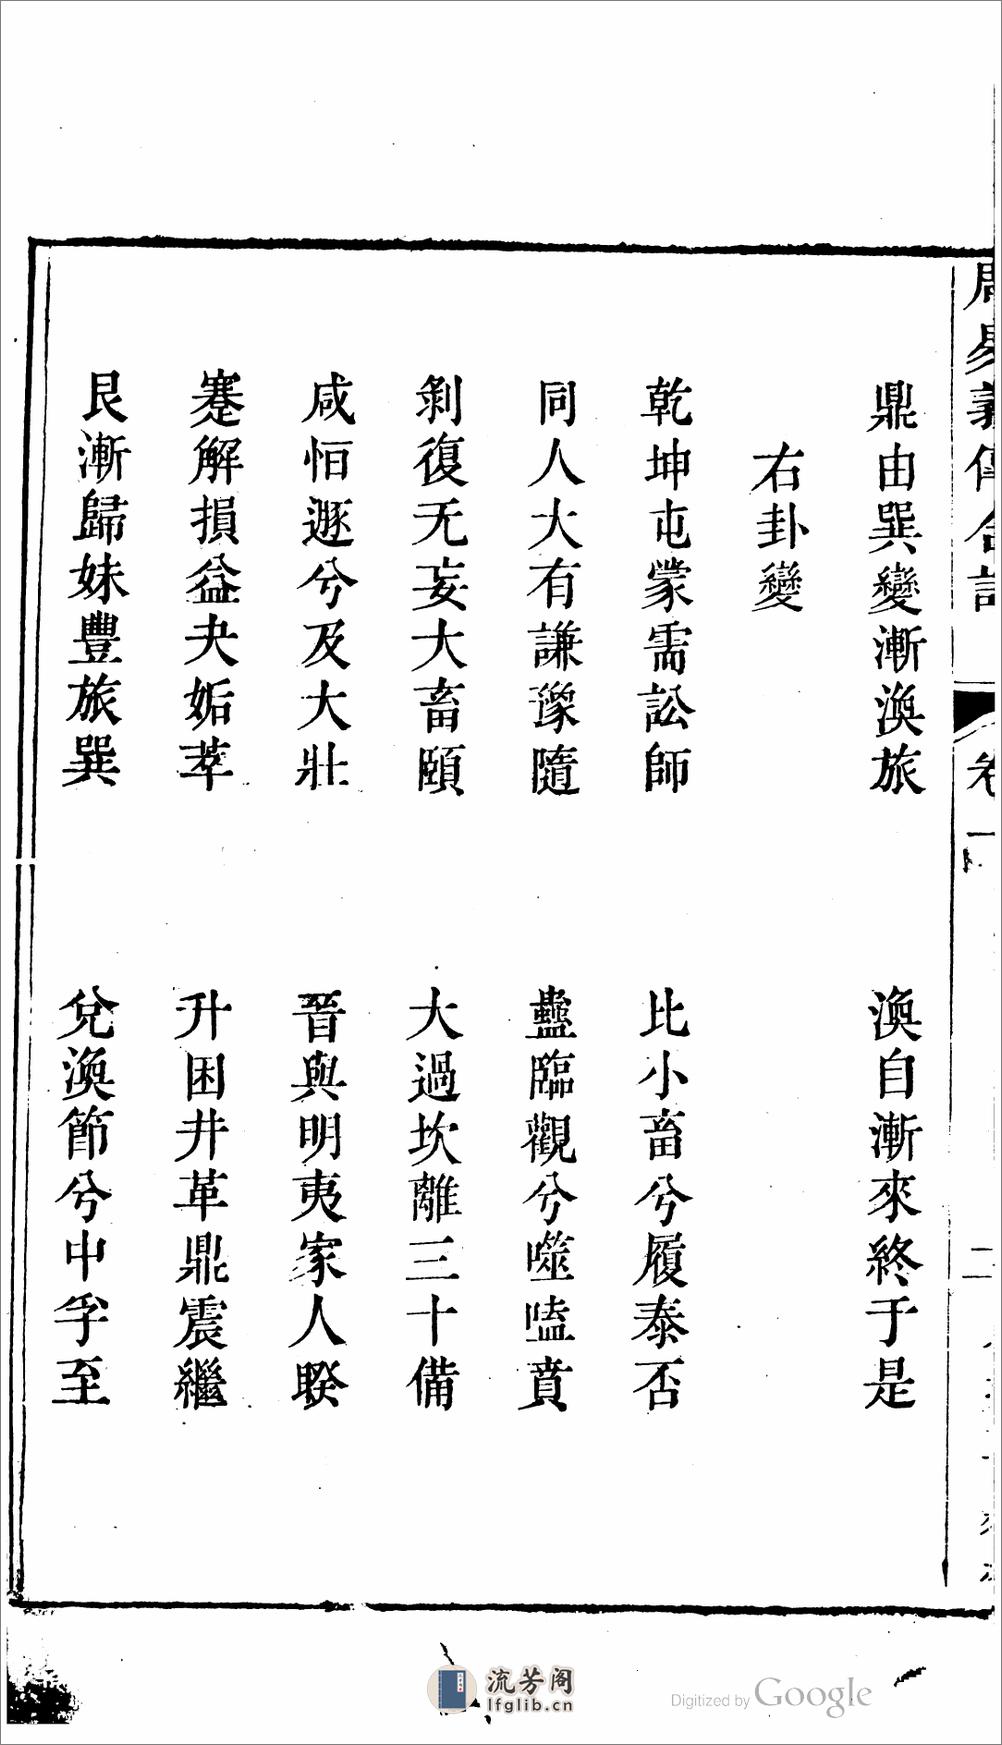 周易義傳合訂 卷一
鼎由巽變漸渙旅 渙自漸來終于是
右卦變
乾坤屯蒙需訟師 比小畜兮履泰否
同人大有謙豫隨 蠱臨觀兮噬嗑賁
剝復无妄大畜頤 大過坎離三十備
咸恒遯兮及大壯 晉與明夷家人睽
蹇解損益夬姤萃 升困井革鼎震繼
艮漸歸妹豐旅巽 兌渙節兮中孚至
流芳阁
lfglib.cn
Digitized by Google